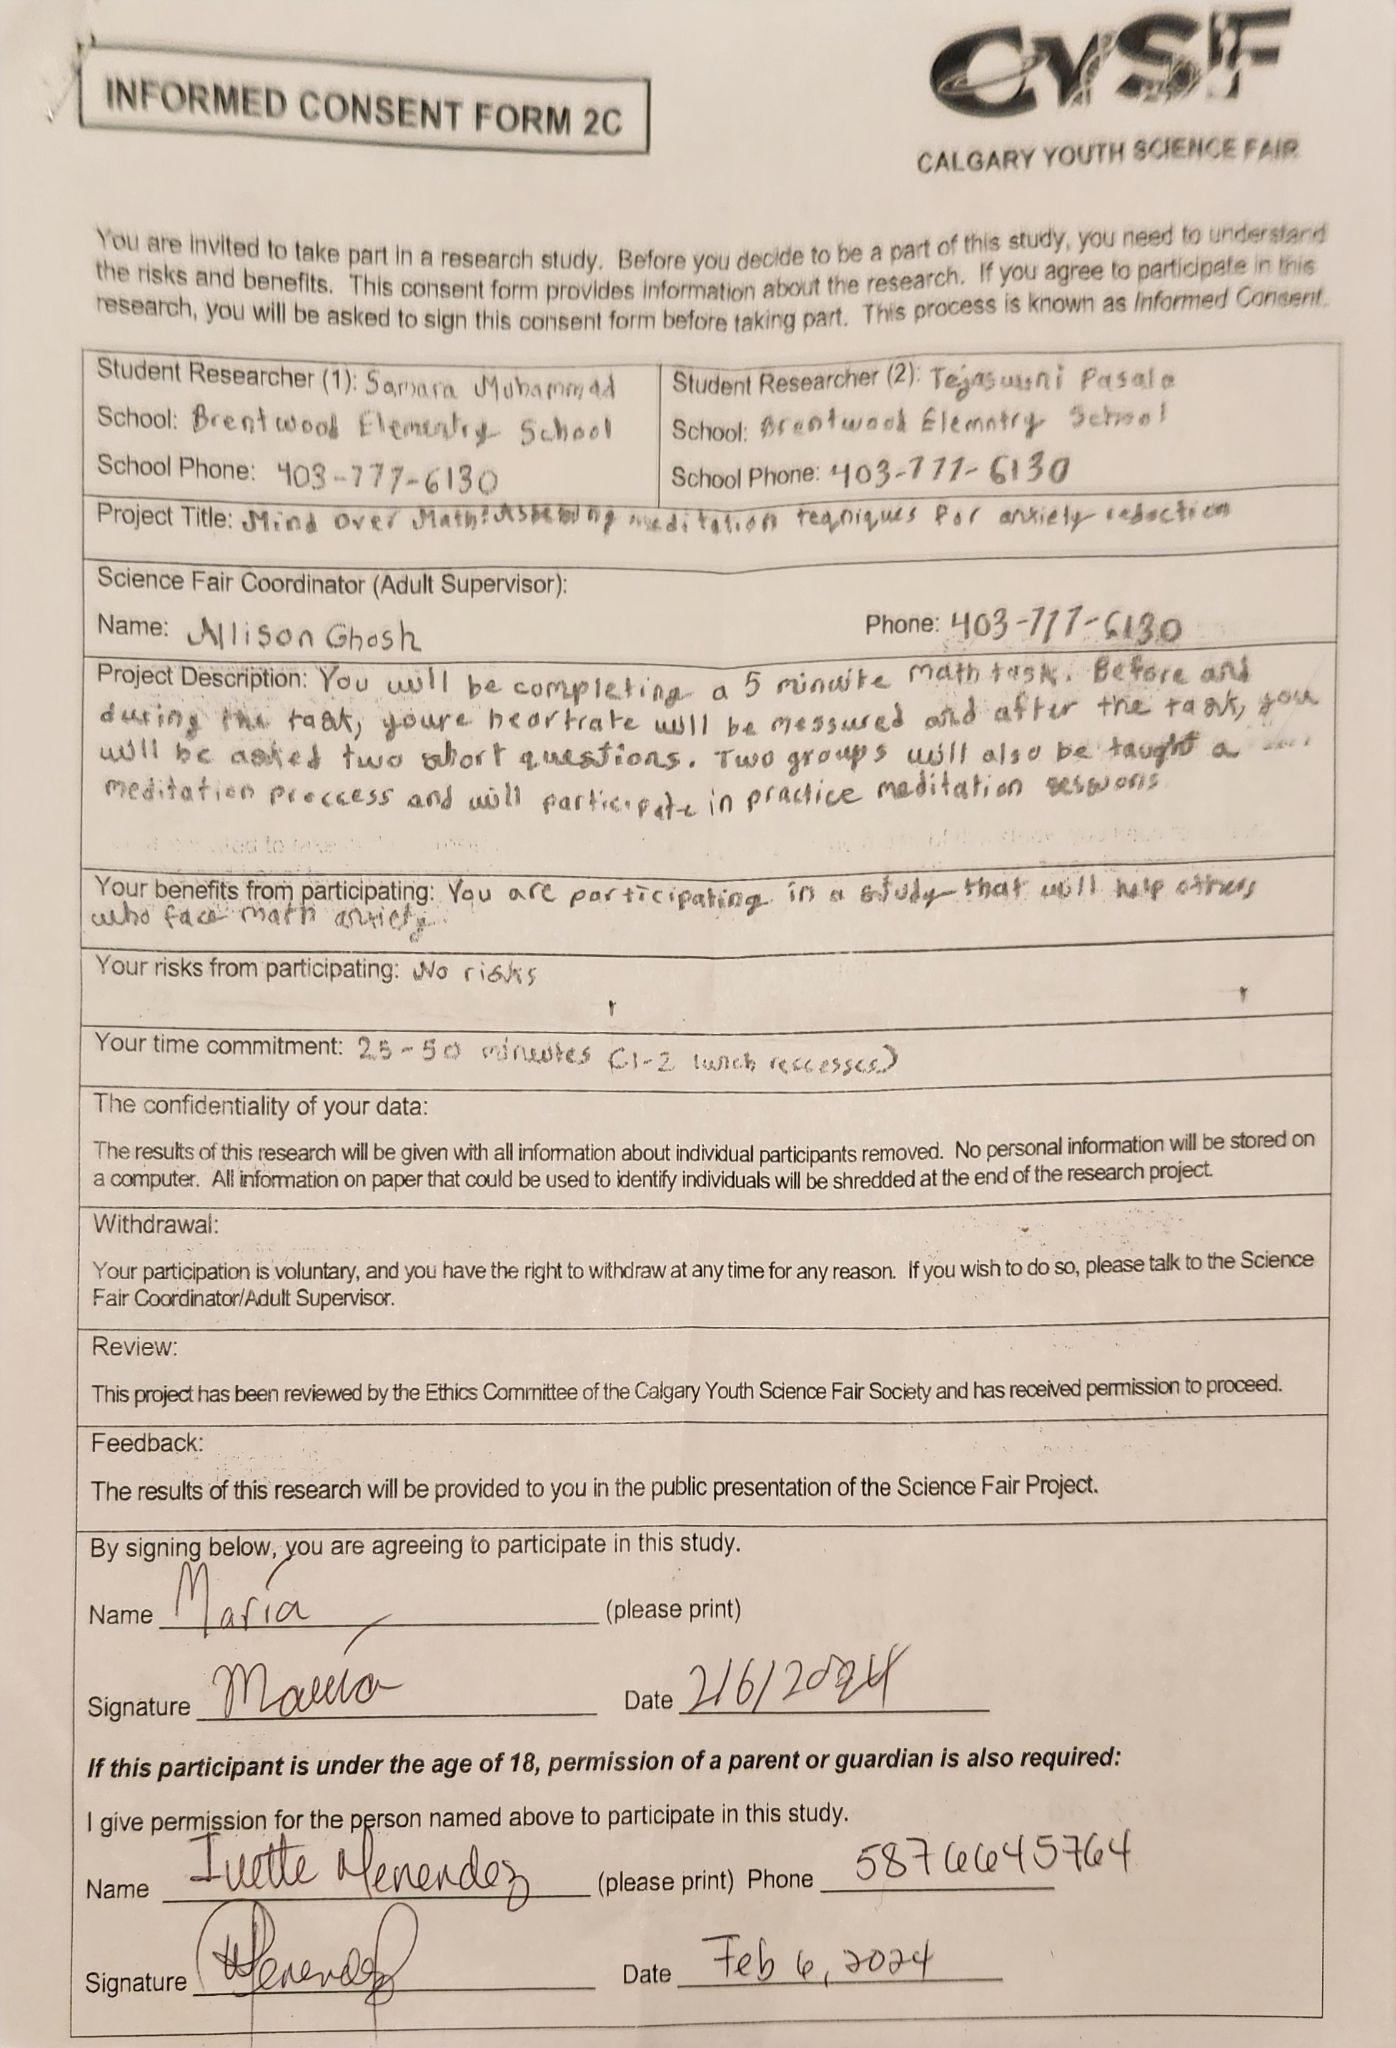 INFORMED CONSENT FORM 2C
CYSF
CALGARY YOUTH SCIENCE FAIR
You are invited to take part in a research study. Before you decide to be a part of this study, you need to understand
the risks and benefits. This consent form provides information about the research. If you agree to participate in this
research, you will be asked to sign this consent form before taking part. This process is known as Informed Consent.
Student Researcher (1): Samara Muhammad
School: Brentwood Elementry School
School Phone: 403-777-6130
Student Researcher (2): Pasala
School: Brentwood Elemntry School
School Phone: 403-777-6130
Project Title: Mind Over Math: meditation teqniques for anxiety reduction
Science Fair Coordinator (Adult Supervisor):
Name: Allison Ghosh Phone: 403-777-6130
Project Description: You will be completing a 5 minuite math task. Before and
during the task, youre heartrate will be messured and after the task, you
will be asked two short questions. Two groups will also be taught a
meditation proccess and will participate in practice meditation sessions
Your benefits from participating: You are participating in a study that will help others
who face math anxiety.
Your risks from participating: No risks
Your time commitment: 25-50 mineutes (1-2 lunch reccesses)
The confidentiality of your data:
The results of this research will be given with all information about individual participants removed. No personal information will be stored on
a computer. All information on paper that could be used to identify individuals will be shredded at the end of the research project.
Withdrawal:
Your participation is voluntary, and you have the right to withdraw at any time for any reason. If you wish to do so, please talk to the Science
Fair Coordinator/Adult Supervisor.
Review:
This project has been reviewed by the Ethics Committee of the Calgary Youth Science Fair Society and has received permission to proceed.
Feedback:
The results of this research will be provided to you in the public presentation of the Science Fair Project.
By signing below, you are agreeing to participate in this study.
Name María (please print)
Signature María Date 2/6/2024
If this participant is under the age of 18, permission of a parent or guardian is also required:
I give permission for the person named above to participate in this study.
Name Ivette Menendez (please print) Phone 5876645764
Signature Menendez Date Feb 6, 2024